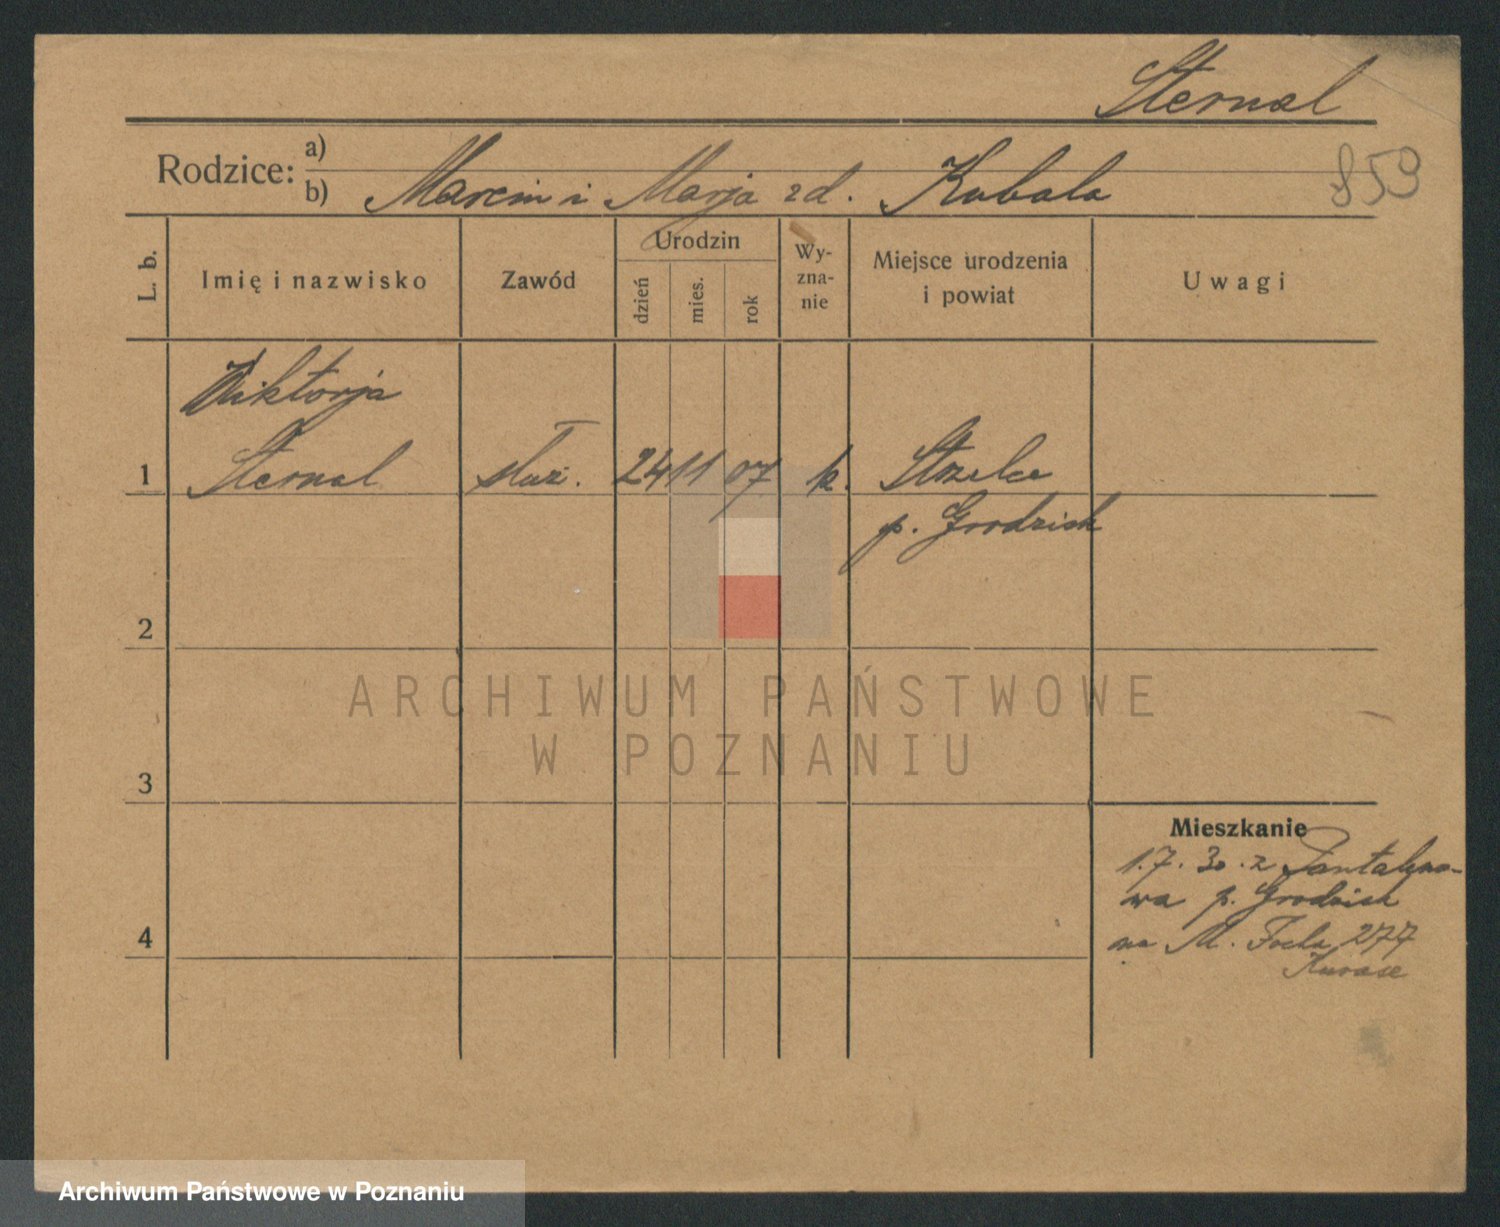 Sternal
Rodzice: a)
b) Marcin i Marja zd. Kubala
859
L. b.
Imię i nazwisko
Zawód
Urodzin
dzień
mies.
rok
Wy-
zna-
nie
Miejsce urodzenia
i powiat
Uwagi
Wiktorja
1 Sternal służ. 24 11 07 k. Strzelce
p. Grodzisk
2
3
4
Mieszkanie
1.7.30. z
wa p. Grodzisk
na M. Focha 277
ARCHIWUM PAŃSTWOWE
W POZNANIU
Archiwum Państwowe w Poznaniu